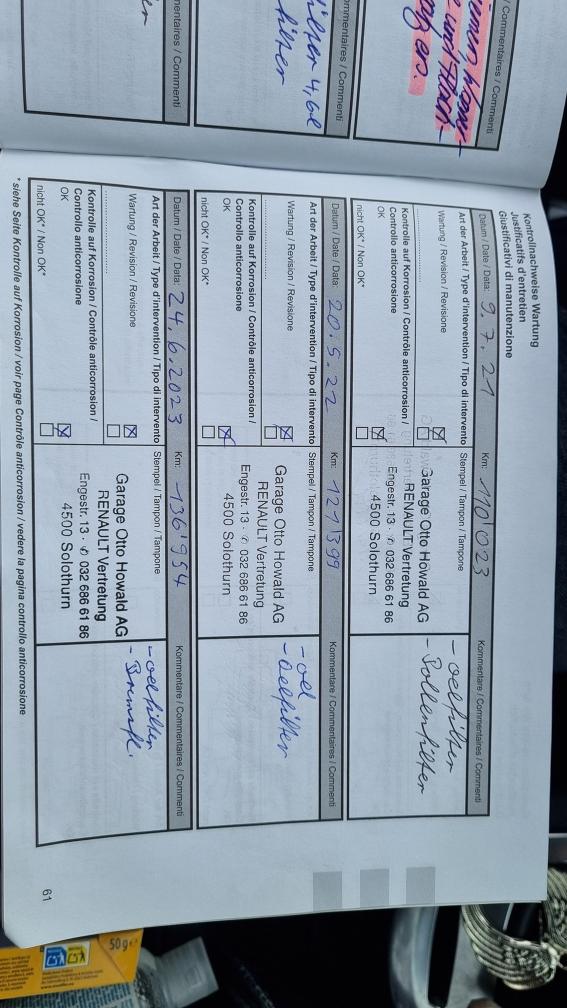 Kontrollnachweise Wartung
Justificatifs d'entretien
Giustificativi di manutenzione
Datum / Date / Data: 9.7.21 Km: 110'023 Kommentare / Commentaires / Commenti
Art der Arbeit / Type d'intervention / Tipo di intervento Stempel / Tampon / Tampone
- oelfilter
- Pollenfilter
Wartung / Revision / Revisione
Kontrolle auf Korrosion / Contrôle anticorrosion /
Controllo anticorrosione
OK
nicht OK* / Non OK*
Garage Otto Howald AG
RENAULT Vertretung
Engestr. 13 · ✆ 032 686 61 86
4500 Solothurn
Datum / Date / Data: 20.5.22 Km: 121'399 Kommentare / Commentaires / Commenti
Art der Arbeit / Type d'intervention / Tipo di intervento Stempel / Tampon / Tampone
- oel
- oelfilter
Wartung / Revision / Revisione
Kontrolle auf Korrosion / Contrôle anticorrosion /
Controllo anticorrosione
OK
nicht OK* / Non OK*
Garage Otto Howald AG
RENAULT Vertretung
Engestr. 13 · ✆ 032 686 61 86
4500 Solothurn
Datum / Date / Data: 24.6.2023 Km: 136'954 Kommentare / Commentaires / Commenti
Art der Arbeit / Type d'intervention / Tipo di intervento Stempel / Tampon / Tampone
- oelfilter
- Bremsfl.
Wartung / Revision / Revisione
Kontrolle auf Korrosion / Contrôle anticorrosion /
Controllo anticorrosione
OK
nicht OK* / Non OK*
Garage Otto Howald AG
RENAULT Vertretung
Engestr. 13 · ✆ 032 686 61 86
4500 Solothurn
* siehe Seite Kontrolle auf Korrosion / voir page Contrôle anticorrosion / vedere la pagina controllo anticorrosione
61
/ Commentaires / Commenti
mmentaires / Commenti
mentaires / Commenti
4,6l
50 g e